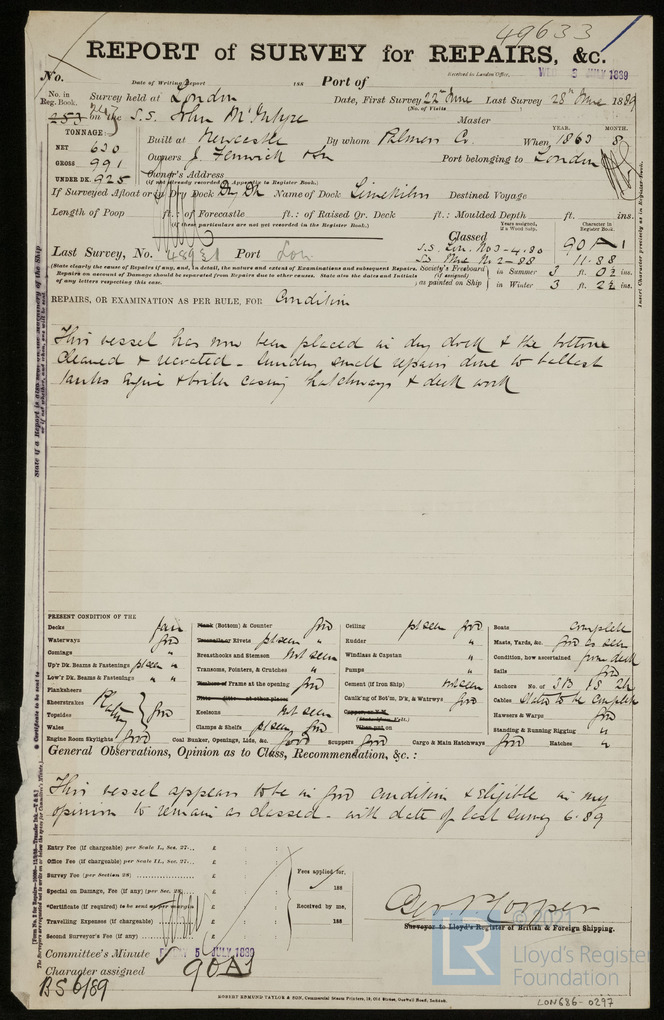 49633
REPORT of SURVEY for REPAIRS, &c.
No.
Date of Writing Report 188 Port of
Received in London Office, WED 3 JULY 1889
No. in Reg. Book. Survey held at London Date, First Survey 22nd June Last Survey 28th June 1889
(No. of Visits
on the S.S. John McIntyre Master
TONNAGE:
NET 630
GROSS 991
UNDER DK. 925
Built at Newcastle By whom Palmers Co. When 1863 8
YEAR. MONTH.
Owners J. Fenwick & Son Port belonging to London
Owner's Address
(if not already recorded in Appendix to Register Book.)
If Surveyed Afloat or in Dry Dock Dry Dk Name of Dock Limekilns Destined Voyage
Length of Poop ft. : of Forecastle ft. : of Raised Qr. Deck ft. : Moulded Depth ft. ins.
(If these particulars are not yet recorded in the Register Book.)
Classed
Years assigned, if a Wood only. Character in Register Book.
Last Survey, No. 48931 Port Lon
S.S. Lon. No 3-4.80 90 A 1
No 2-88 11.88
(State clearly the cause of Repairs if any, and, in detail, the nature and extent of Examinations and subsequent Repairs.
Repairs on account of Damage should be separated from Repairs due to other causes. State also the dates and Initials
of any letters respecting this case.
Society's Freeboard (if assigned) as painted on Ship
in Summer 3 ft. 0½ ins.
in Winter 3 ft. 2½ ins.
REPAIRS, OR EXAMINATION AS PER RULE, FOR Condition
This vessel has now been placed in dry dock & the bottom
cleaned & recoated - sundry small repairs done to ballast
tanks Engine & boiler casing hatchways & deck work
PRESENT CONDITION OF THE
Decks fair
Waterways good
Comings "
Up'r Dk. Beams & Fastenings pt seen "
Low'r Dk. Beams & Fastenings " "
Planksheers
Sheerstrakes
Topsides
Wales
Plating good
Engine Room Skylights good
Plank (Bottom) & Counter good
Treenails or Rivets pt seen "
Breasthooks and Stemson Not seen
Transoms, Pointers, & Crutches "
Timbers or Frame at the opening good
Ditto ditto at other places
Keelsons not seen
Clamps & Shelfs pt seen good
Coal Bunker, Openings, Lids, &c. good
Ceiling pt seen good
Rudder "
Windlass & Capstan "
Pumps "
Cement (if Iron Ship) not seen
Caulk'ng of Bot'm, D'k, & Watrwys good
Scuppers good
Cargo & Main Hatchways good
Boats complete
Masts, Yards, &c. good as seen
Condition, how ascertained from deck
Sails good
Anchors No. of 3 B 1 S 2 K
Cables Stated to be complete
Hawsers & Warps good
Standing & Running Rigging "
Hatches "
General Observations, Opinion as to Class, Recommendation, &c. :
This vessel appears to be in good condition & Eligible in my
opinion to remain as classed - with date of last survey 6.89
Entry Fee (if chargeable) per Scale I., Sec. 27... £ : :
Office Fee (if chargeable) per Scale II., Sec. 27... £ : :
Survey Fee (per Section 28) £ : :
Special on Damage, Fee (if any) (per Sec. 28) £ : :
*Certificate (if required) to be sent as per margin
Travelling Expenses (if chargeable) £ : :
Second Surveyor's Fee (if any) £ : :
Fees applied for, 188
Received by me, 188
Surveyor to Lloyd's Register of British & Foreign Shipping.
Committee's Minute 5 JULY 1889
Character assigned 90 A1
BS 6/89
ROBERT EDMUND TAYLOR & SON, Commercial Steam Printers, 19, Old Street, Goswell Road, London.
LON686-0297
© 2021
LR
Lloyd's Register
Foundation
Insert Character precisely as in Register Book.